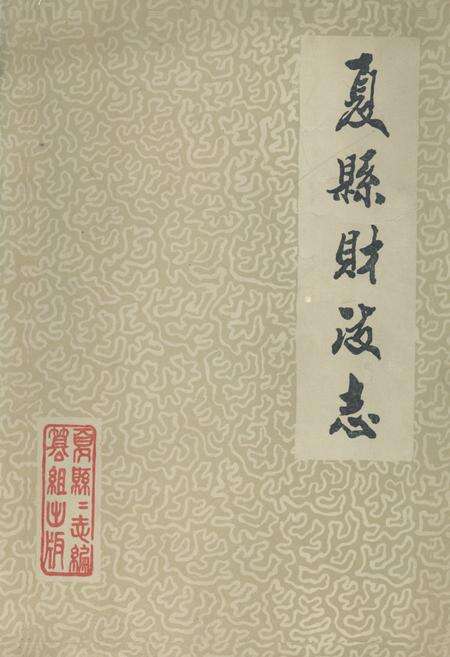 夏縣財政志
夏縣〻志編
纂組出版